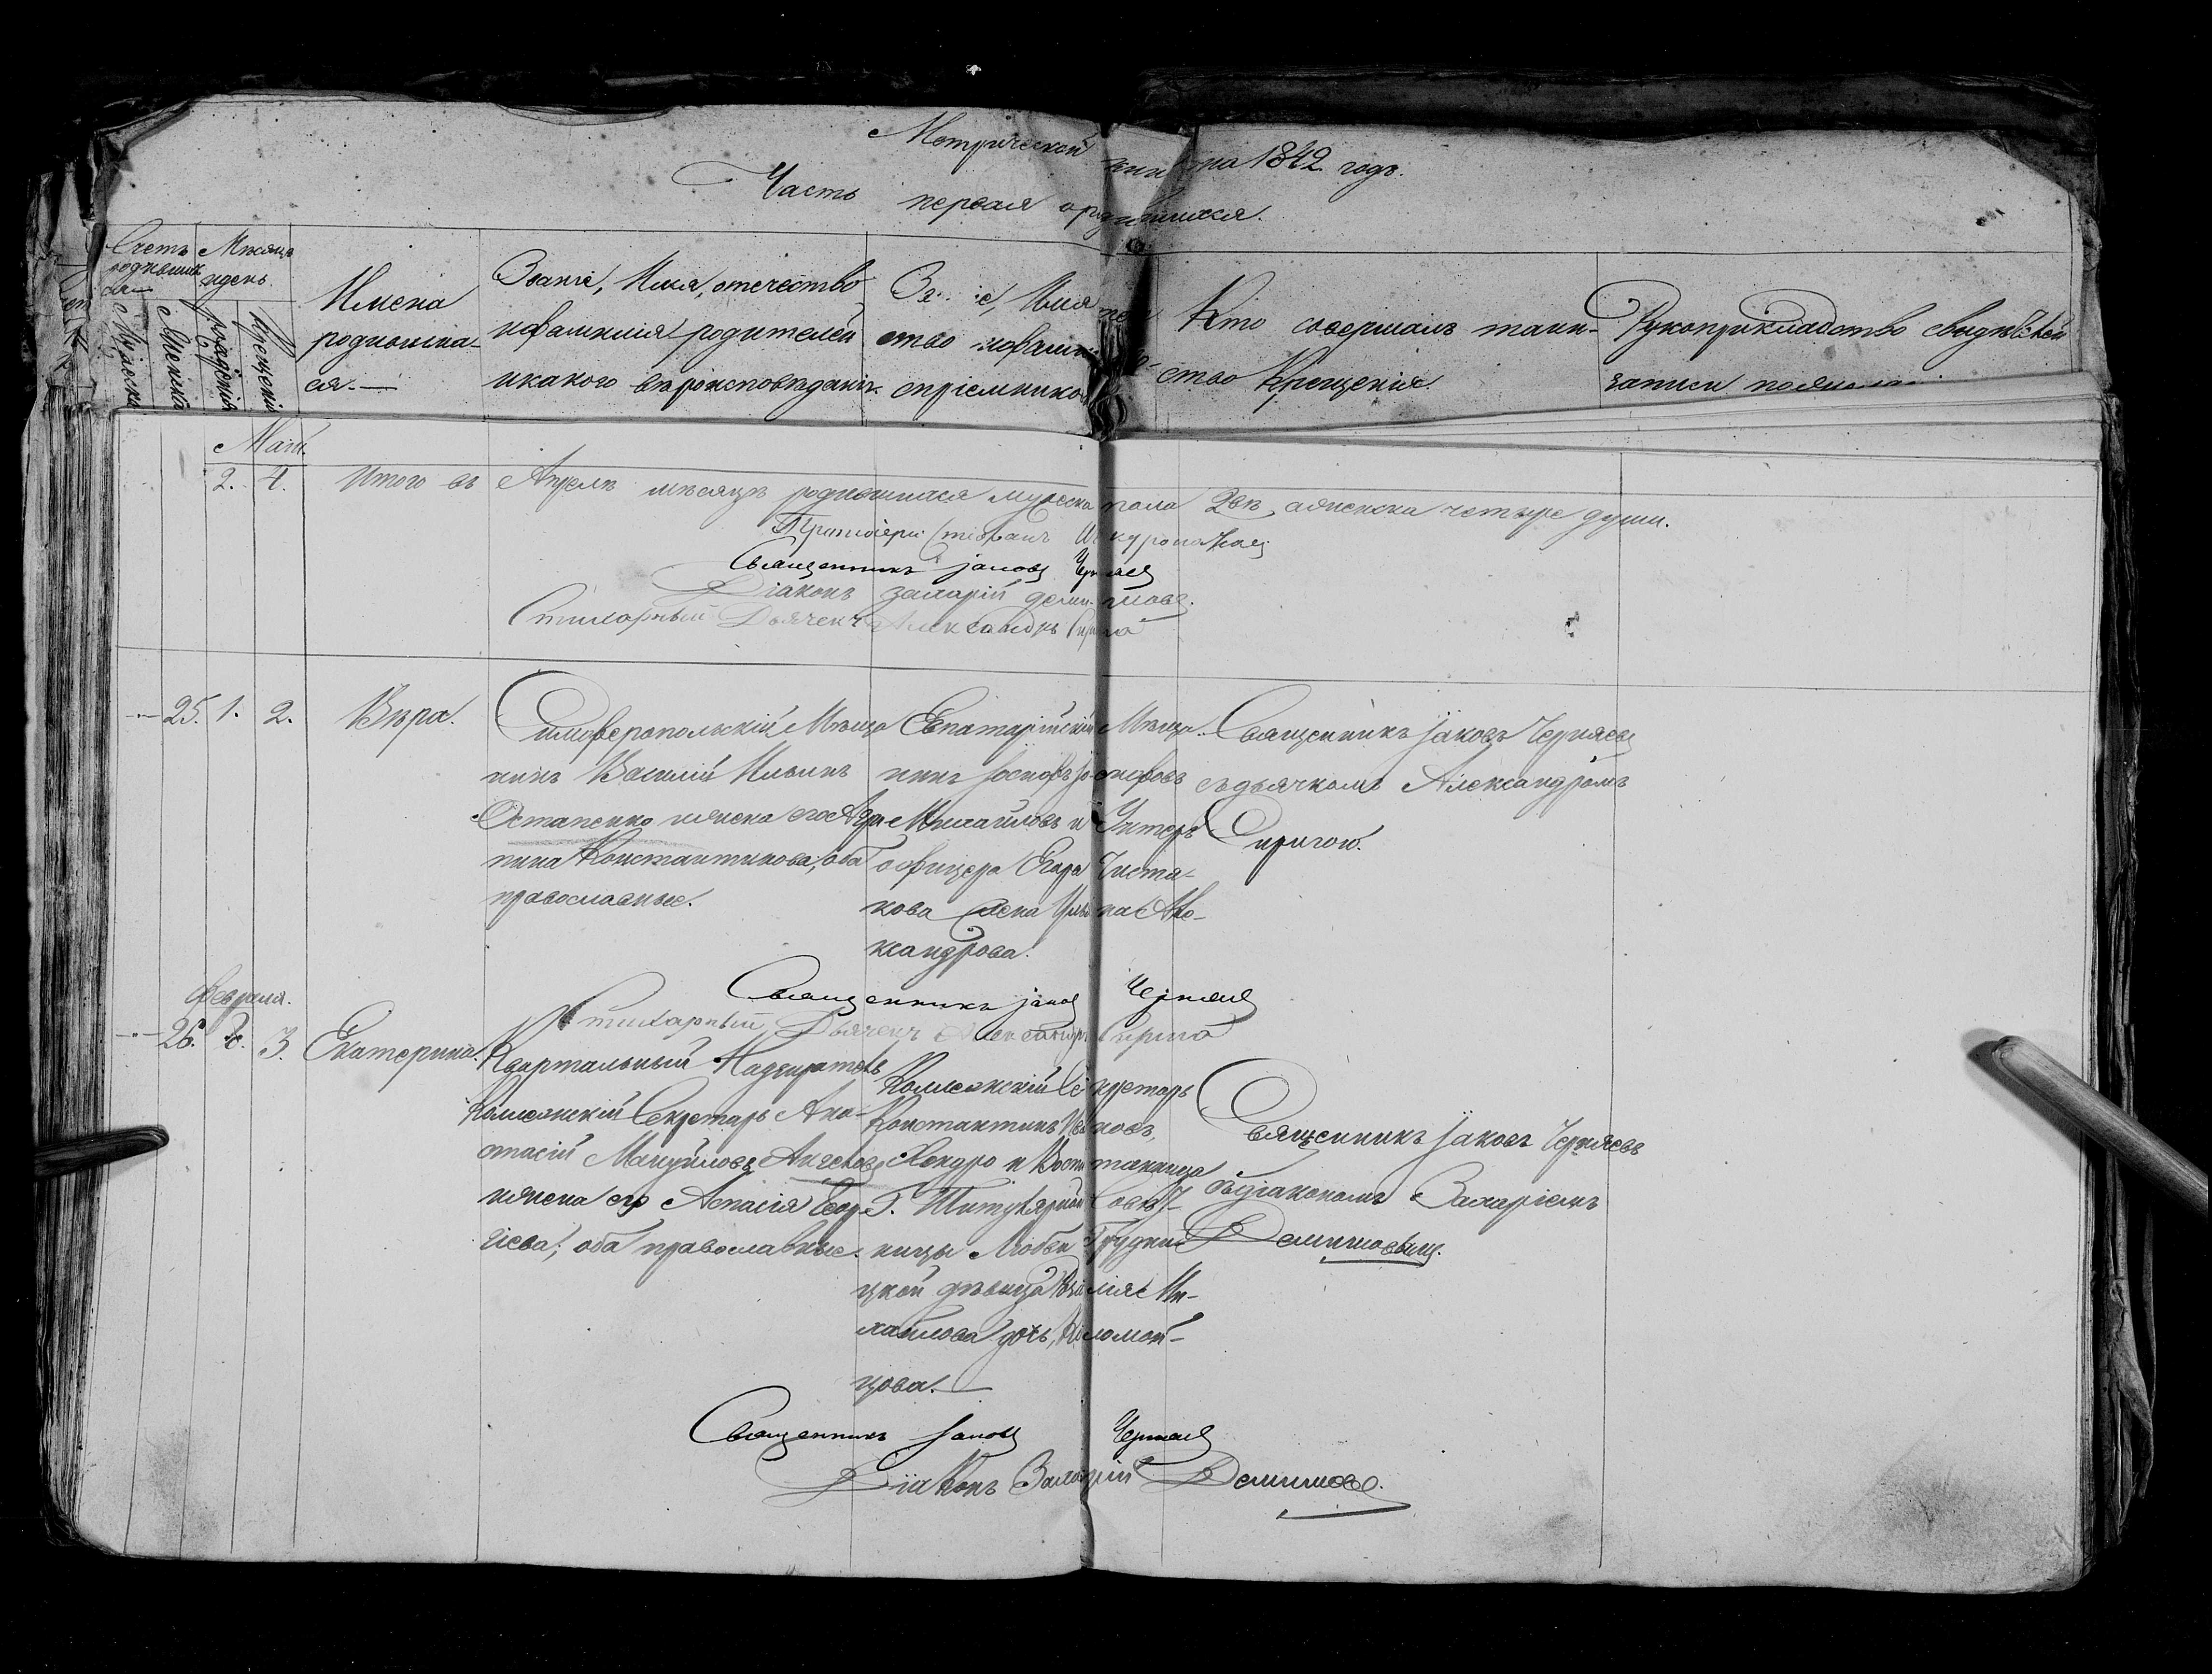 Метрической книги на 1842 годъ.
Часть первая о родившихся.
Счетъ родившихся
Мужеска
Женска
Мѣсяцъ и день
рожденія
Крещенія
Имена
родившихся.
Званіе, Имя, отечество
и фамилія родителей
и какого вѣроисповѣданія.
Имя
ство и фамилія
воспріемниковъ
Кто совершалъ таин-
ство Крещенія.
Рукоприкладство свидѣтелей
записи по желанію
Маій.
2. 4. Итого въ Апрелѣ мѣсяцѣ родившихся мужеска пола двѣ, а женска четыре души.
Протоіерей Стефанъ
Священникъ Іаковъ Черняевъ
Діаконъ Захарій Демишовъ.
Стихарный Дьячекъ Александръ Сирига
25. 1. 2. Вѣра.
Симферопольскій Мѣща
нинъ Василій Ильинъ
Остапенко и жена его Агри-
пина Константинова, оба
православные.
Евпаторійскій Мѣща
нинъ Іосифъ Іосифовъ
Михайловъ и Унтеръ
офицера Егора Чиста-
кова жена Ирина Але-
ксандрова.
Священникъ Іаковъ Черняевъ
съ дьячкомъ Александромъ
Сиригою.
Священникъ Іаковъ Черняевъ
Стихарный Дьячекъ Александръ Сирига
Февраля.
26. 2. 3. Екатерина.
Квартальный Надзиратель
Коллежскій Секретарь Ана-
стасій Мануйловъ
и жена его Аспасія Геор-
гіева; оба православные.
Коллежскій Секретарь
Константинъ Ивановъ,
Хондро и Воспитанница
Г. Титулярной Совѣт-
ницы Любви
цкой дѣвица Ми-
хайлова дочь,
цова.
Священникъ Іаковъ Черняевъ
съ діакономъ Захаріемъ
Демишовымъ.
Священникъ Іаковъ Черняевъ
Діаконъ Захарій Демишовъ.